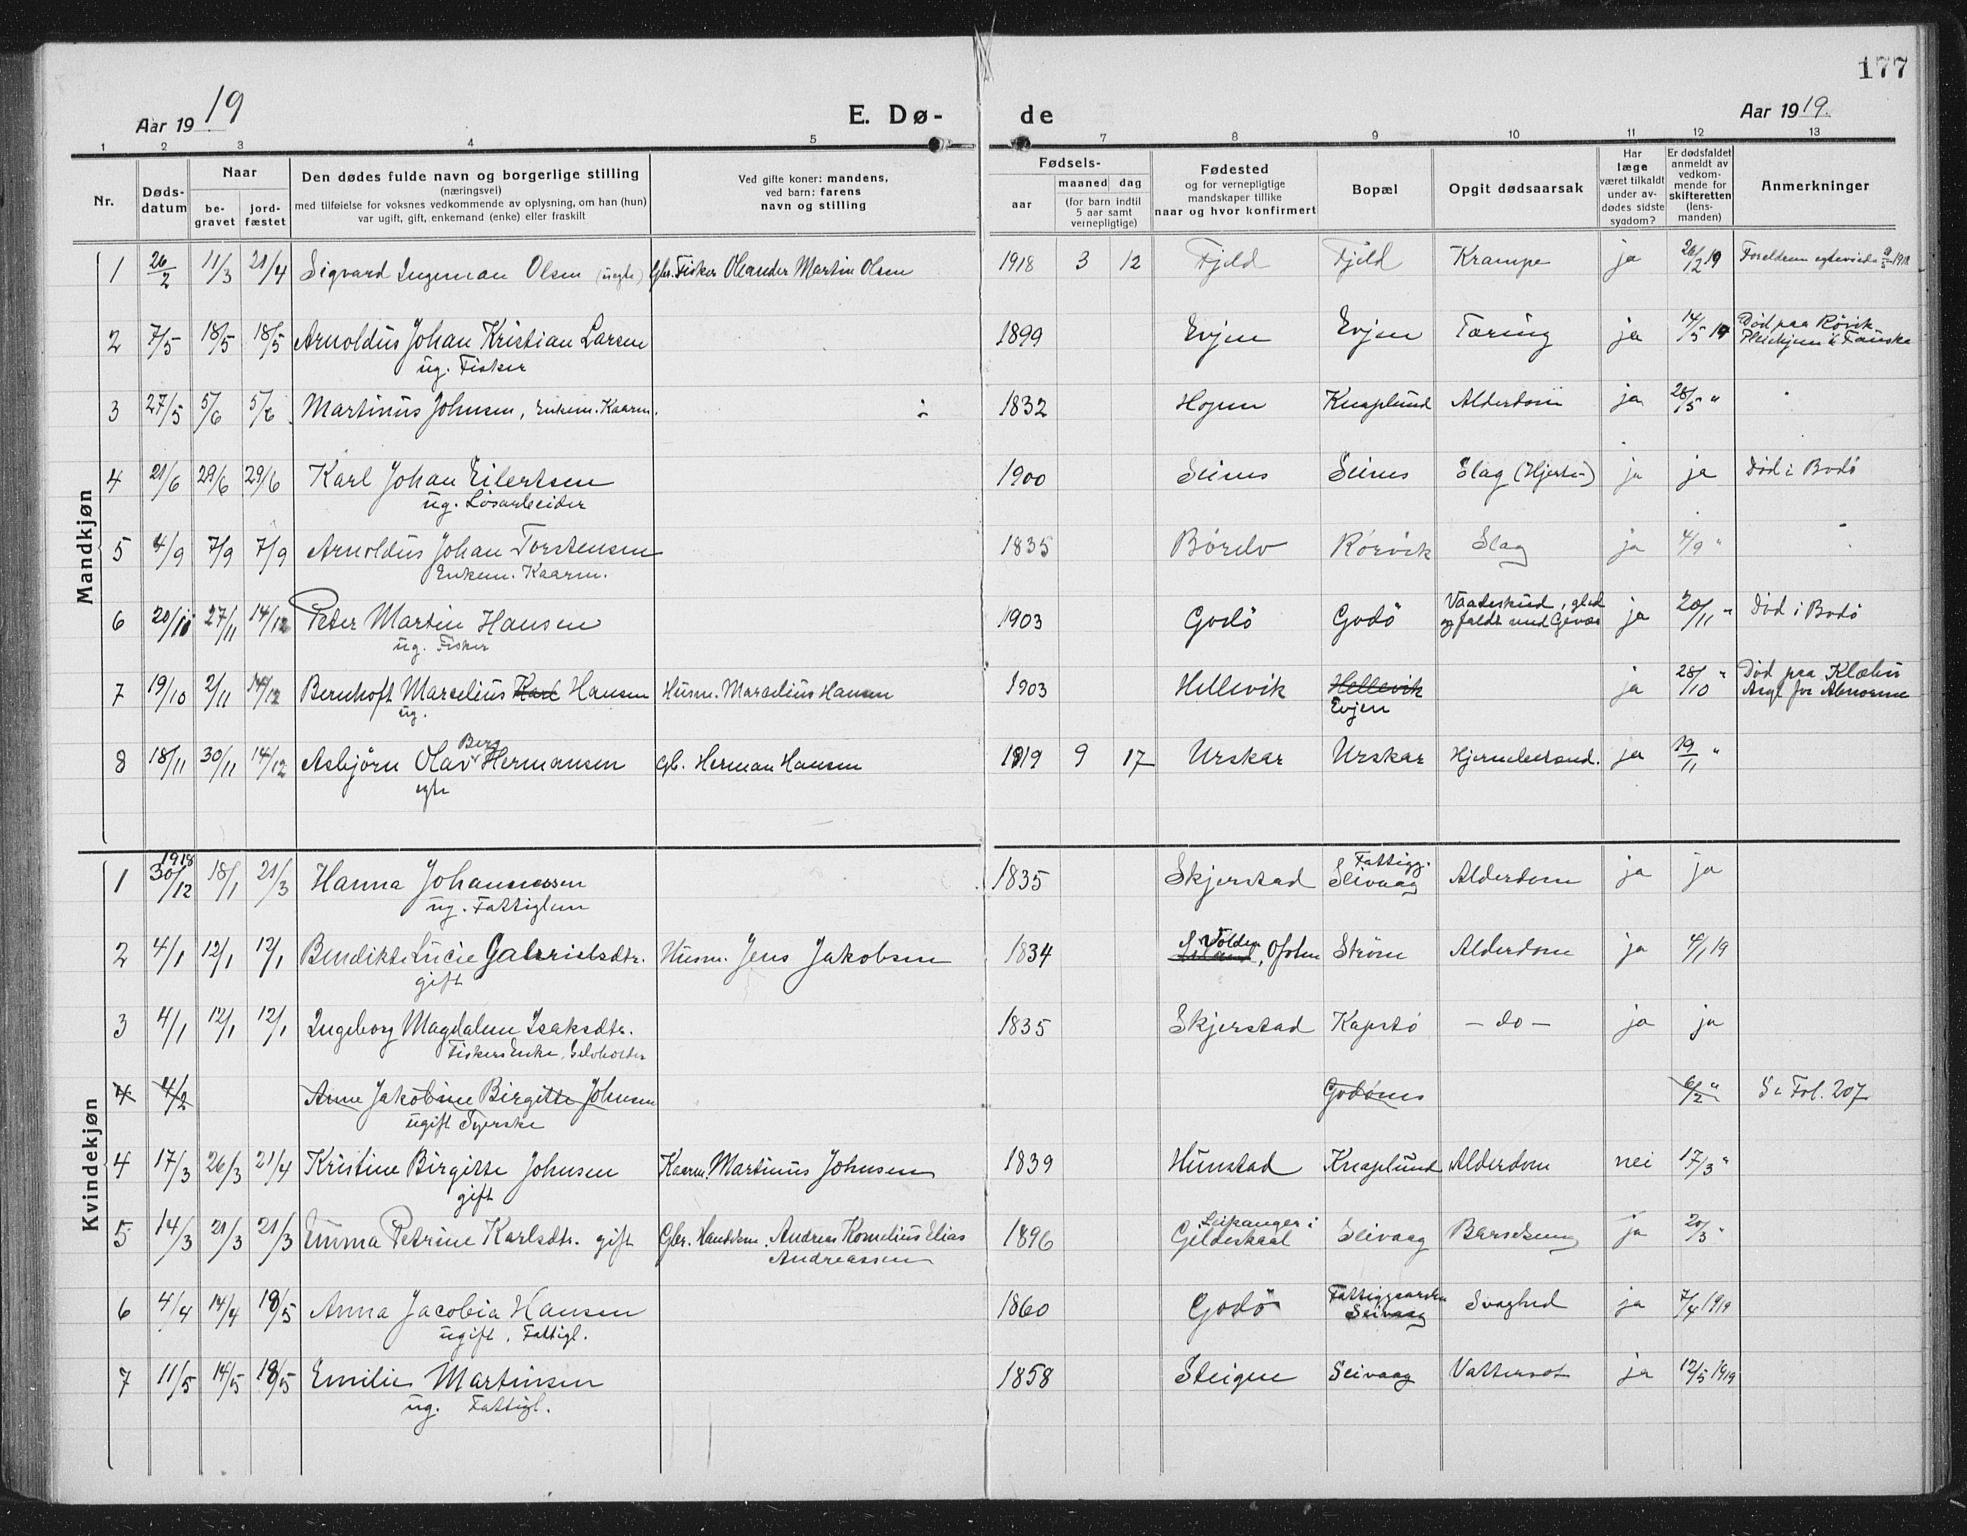 177
Aar 1919 E. Dø- de Aar 1919.
1 2 3 4 5 7 8 9 10 11 12 13
Nr. Døds-datum Naar be-gravet jord-fæstet
Den dødes fulde navn og borgerlige stilling
(næringsvei)
med tilføielse for voksnes vedkommende av oplysning, om han (hun)
var ugift, gift, enkemand (enke) eller fraskilt
Ved gifte koner: mandens,
ved barn: farens
navn og stilling
Fødsels-
aar maaned dag
(for barn indtil
5 aar samt
vernepligtige)
Fødested
og for vernepligtige
mandskaper tillike
naar og hvor konfirmert
Bopæl
Opgit dødsaarsak
Har
læge
været tilkaldt
under av-
dødes sidste
sygdom?
Er dødsfaldet
anmeldt av
vedkom-
mende for
skifteretten
(lens-
manden)
Anmerkninger
Mandkjøn
1 26/2 11/3 21/4 Sigvard Ingeman Olsen (uegte) Gbr. Fisker Oleander Martin Olsen 1918 3 12 Fjeld Fjeld Krampe ja 26/2 19 Foreldrene egteviede 9/5 1918
2 7/5 18/5 18/5 Arnoldus Johan Kristian Larsen 1899 Evjen Evjen Tæring ja 14/5 19 Død paa Rørvik
ug. Fisker Pleiehjem i Fauske
3 27/5 5/6 5/6 Martinus Johnsen, Enkem. Kaarm. 1832 Hopen Knaplund Alderdom ja 28/5 "
4 21/6 29/6 29/6 Karl Johan Eilertsen 1900 Seines Seines Slag (Hjerte-) ja ja Død i Bodø
ug. Løsarbeider
5 4/9 7/9 7/9 Arnoldus Johan Torstensen 1835 Børelv Rørvik Slag ja 4/9 "
Enkem. Kaarm.
6 20/11 27/11 14/12 Peter Martin Hansen 1903 Godø Godø Vaadeskud, gled ja 20/11 " Død i Bodø
ug. Fisker og faldt med Gevær
7 19/10 2/11 14/12 Bernhoft Marselius Karl Hansen Husm. Marselius Hansen 1903 Hellevik Hellevik ja 28/10 " Død paa Klæbu
ug. Evjen Asyl for Abnorme
8 18/11 30/11 14/12 Asbjørn Olav Berg Hermansen Gb. Herman Hansen 1919 9 17 Urskar Urskar Hjernebetænd. ja 19/11 "
egte
Kvindekjøn
1 1918 30/12 18/1 21/3 Hanna Johannessen 1835 Skjerstad Fattigg. Seivaag Alderdom ja ja
ug. Fattiglem
2 4/1 12/1 12/1 Bendikte Lucie Gabrielsdtr. Husm. Jens Jakobsen 1834 Volden, Ofoten Strøm Alderdom ja 4/1 19
gift
3 4/1 12/1 12/1 Ingeborg Magdalene Isaksdtr. 1835 Skjerstad Kapstø - do - ja ja
Fiskers Enke, Selvholder
4 4/2 Anne Jakobine Birgitte Johnsen Godønes 6/2 " Se Fol. 207
ugift Syerske
4 17/3 26/3 21/4 Kristine Birgitte Johnsen Kaarm. Martinus Johnsen 1839 Hunstad Knaplund Alderdom nei 17/3 "
gift
5 14/3 21/3 21/3 Emma Petrine Karlsdtr. gift Gbr. Handelsm. Andreas Kornelius Elias 1896 Leipanger i Gildeskaal Seivaag Barselseng ja 20/3 "
Andreassen
6 4/4 14/4 18/5 Anna Jacobia Hansen 1860 Godø Fattiggaarden Seivaag Svaghed ja 7/4 1919
ugift, Fattigl.
7 11/5 14/5 18/5 Emilie Martinsen 1858 Steigen Seivaag Vattersot ja 12/5 1919
ug. Fattigl.